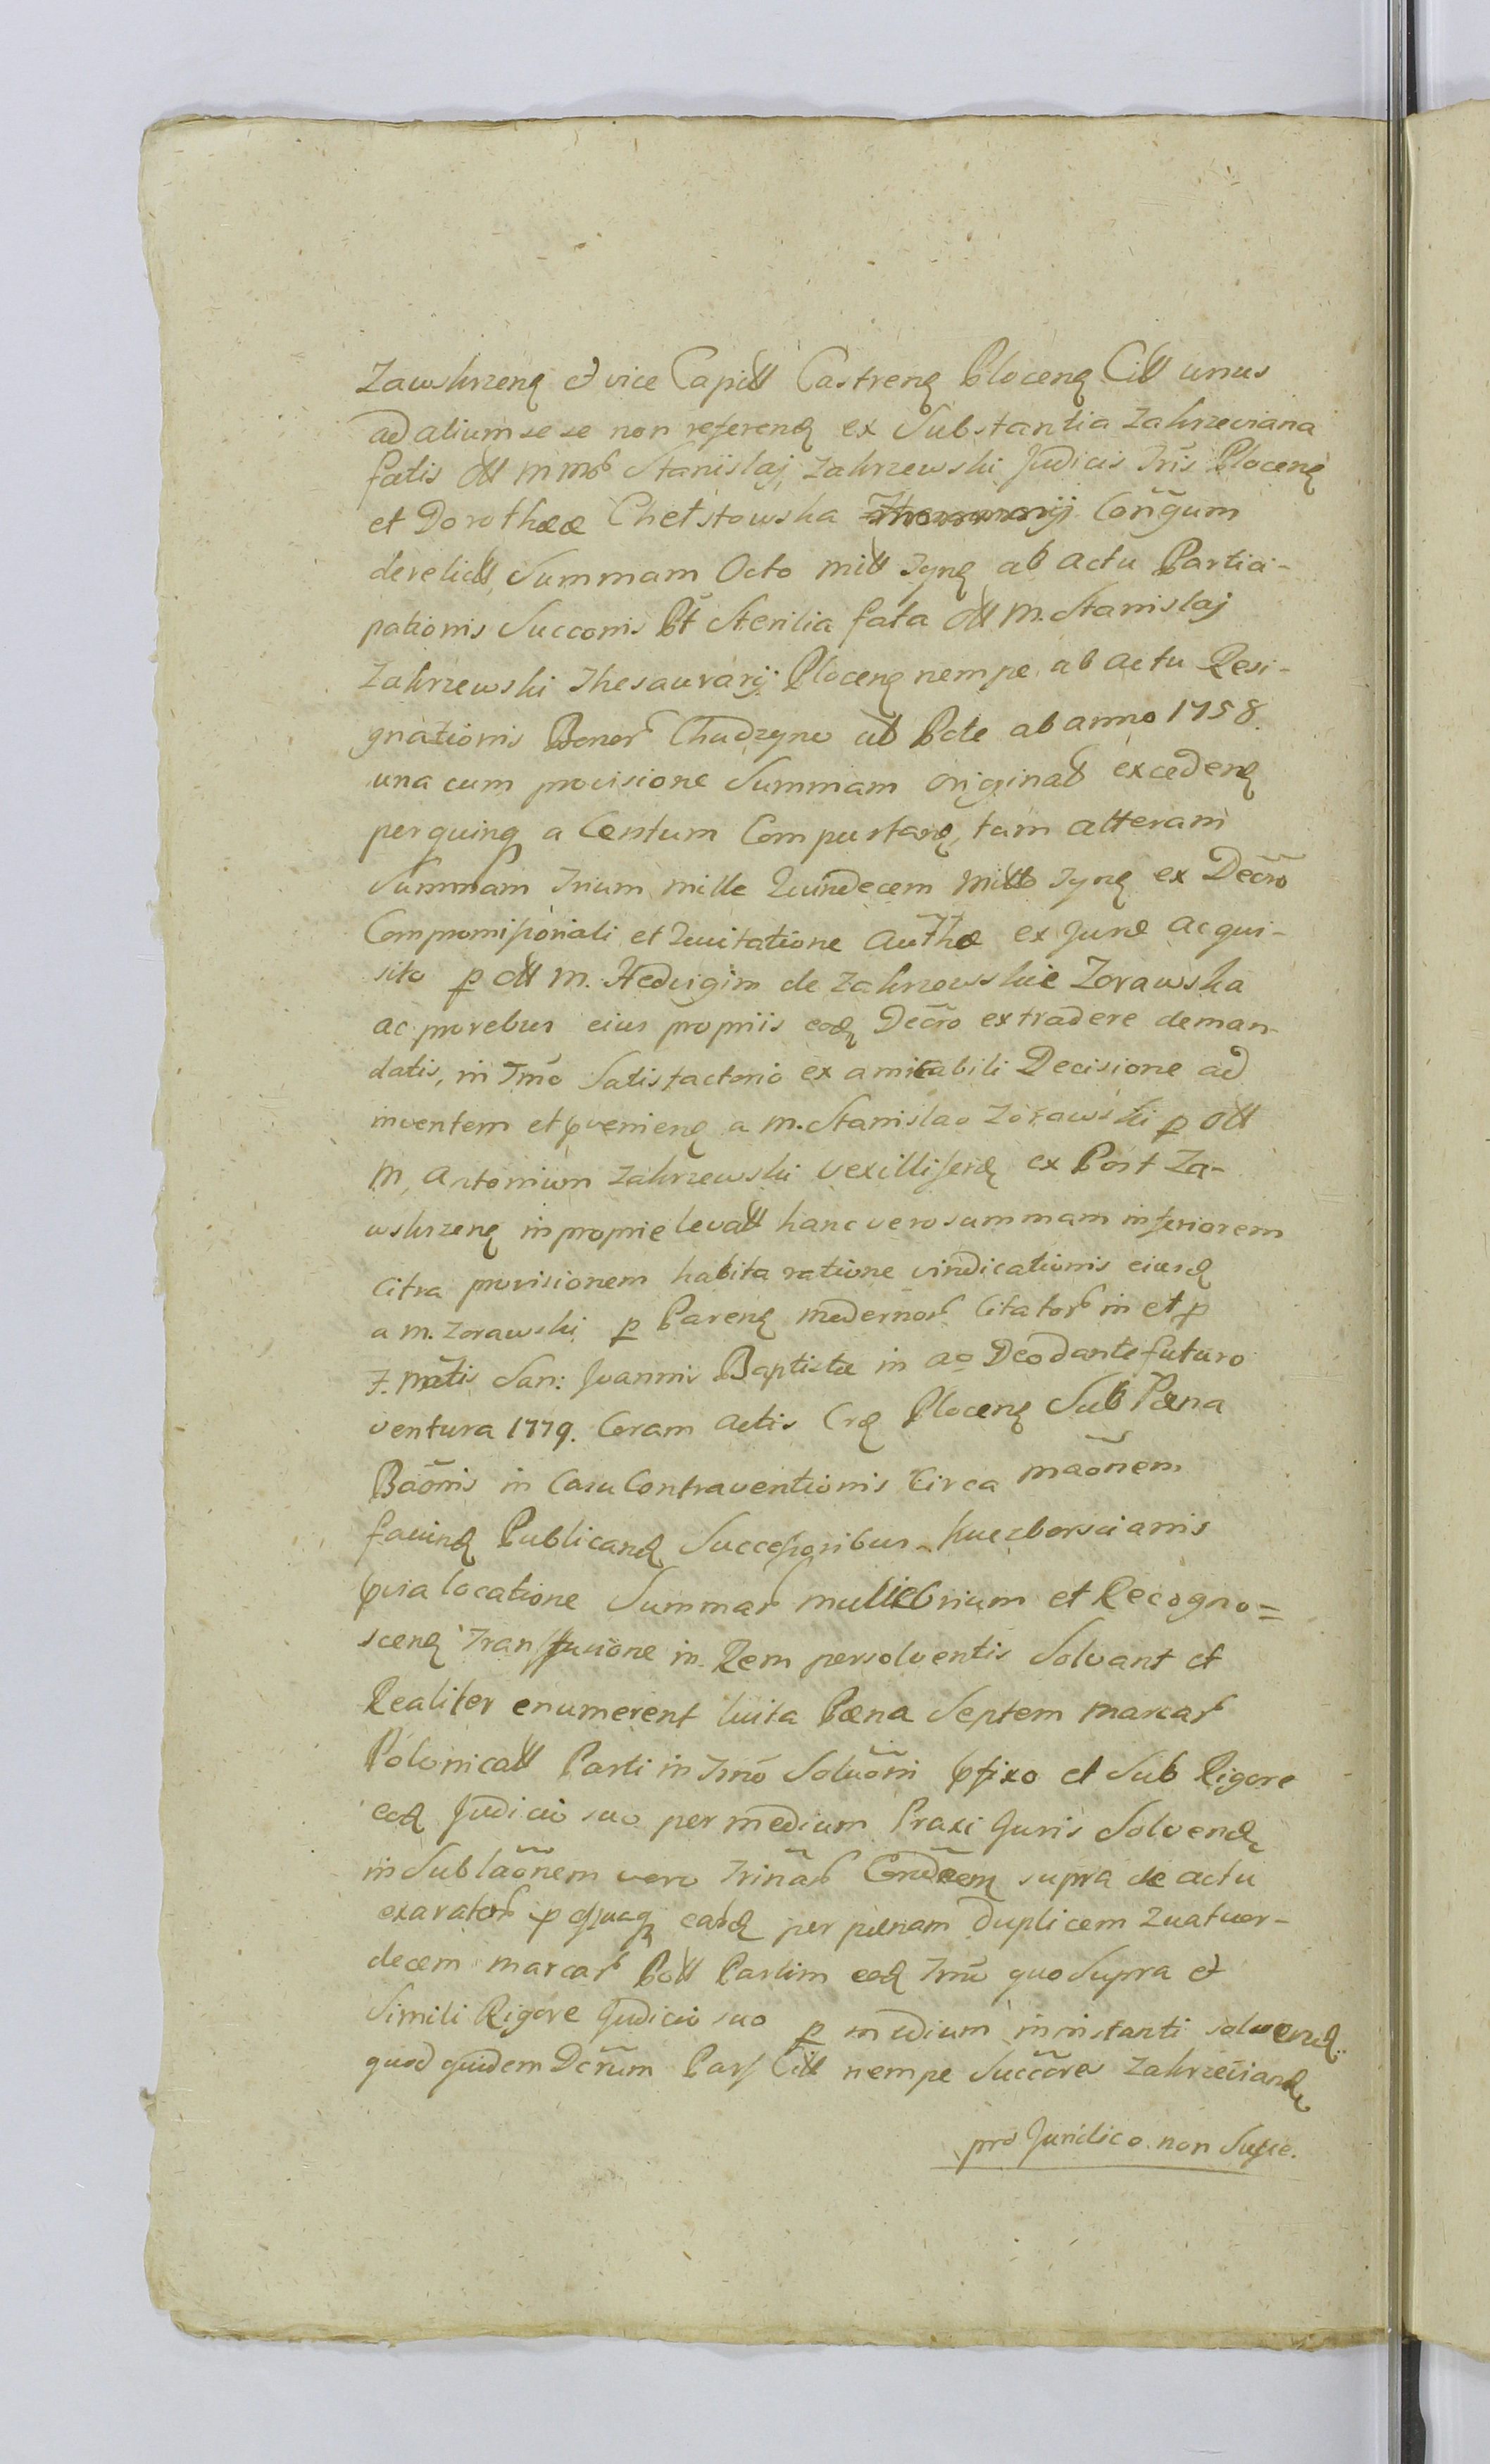 Zawskrzenẽ et vice Capitll Castrenẽ Plocenẽ Citll unus
ad alium se se non referendẽ ex Substantia Zakrzeviana
fatis oll m mor Stanislaj Zakrzewski Judicis Tris Plocenẽ
et Dorotheæ Chełstowska Coñgum
derelictll Summam Octo mill Tynẽ ab actu Partici-
pationis Succonis Pt Sterilia fata oll M. Stanislaj
Zakrzewski Thesaurarij Plocenẽ nempe ab actu Resi-
gnationis Bonor Chudzyno ab Pcte ab anno 1758.
una cum provisione Summam originalb excedenẽ
per quinq a Centum Computandẽ, tum alteram
Summam Trium mille Quindecem Millb Tynẽ ex Decro
Compromissionali et Quitatione Authæ ex Jure acqui-
sito p oll M. Hedvigim de Zakrzewskie Zorawska
ac pro rebus eius propriis eodẽ Decro extradere deman-
datis, in Tmo Satisfactorio ex amicabili Decisione ad
inventem et pvenienẽ a M. Stanislao Zorawski p oll
M. Antonium Zakrzewski Vexilliferẽ ex Post Za-
wskrzenẽ in proprie levatll hanc vero summam inferiorem
citra provisionem habita ratione vindicationis eiusdẽ
a M. Zorawski p Parenẽ modernor Citator in et p
F. Nvtis San: Joannis Baptistæ in ao Deo dante futuro
ventura 1779. Coram Actis Crẽ Plocenẽ Sub Pæna
Baõnis in Casu Contraventionis circa maõnem
faciendẽ Publicandẽ Successoribus Kuczborscianis
pvia locatione Summar muliebrium et Recogno=
scendẽ Transfusione in Rem persolventis Solvant et
Realiter enumerent luita Pæna Septem marcar
Polonicall Parti in Tmo Soluõni pfixo et Sub Rigore
eodẽ Judicio suo per medium Praxi Juris Solvendẽ
in Sublaõnem vero Trinar Condem supra de actu
exarator p eadẽ per pænam duplicem Quatuor-
decem marcar Poll Partim eodẽ Tmo quo Supra et
Simili Rigore Judicio suo p medium in instanti solvendẽ.
quod quidem Dcrum Pars Citll nempe Succores Zakrzeviandẽ
pro Juridico non Susce.